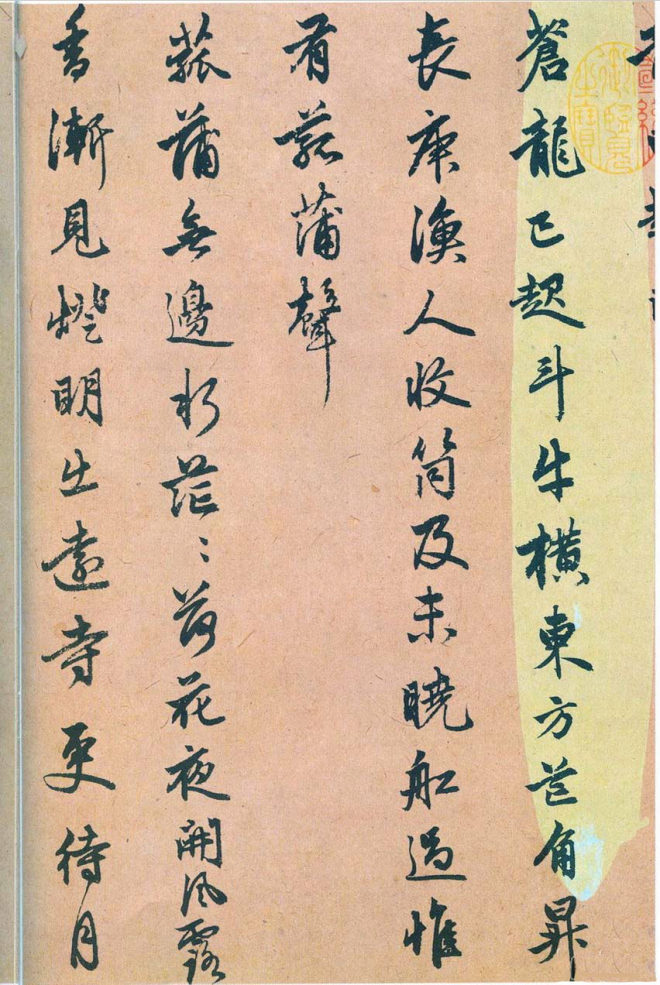 宣統御覽之寶
蒼龍已起斗牛橫東方芒角昇
長庚漁人收筒及未曉船過惟
有菰蒲聲
菰蒲無邊水茫〻荷花夜開風露
香漸見燈明出遠寺更待月